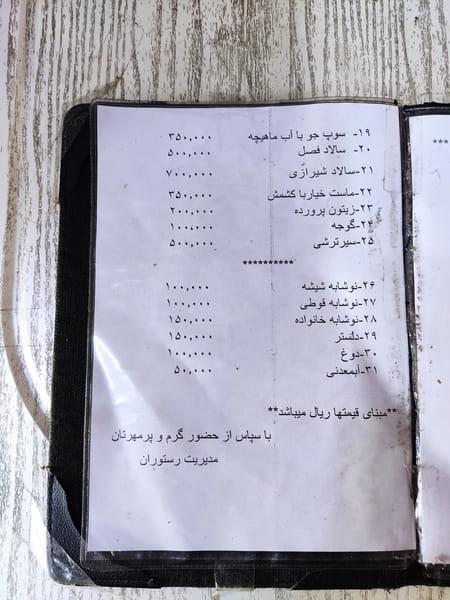 ۱۹- سوپ جو با آب ماهیچه ۳۵۰,۰۰۰
۲۰- سالاد فصل ۵۰۰,۰۰۰
۲۱-سالاد شیرازی ۷۰۰,۰۰۰
۲۲-ماست خیاربا کشمش ۳۵۰,۰۰۰
۲۳-زیتون پرورده ۲۰۰,۰۰۰
۲۴-گوجه ۱۰۰,۰۰۰
۲۵-سیرترشی ۵۰۰,۰۰۰
**********
۲۶-نوشابه شیشه ۱۰۰,۰۰۰
۲۷-نوشابه قوطی ۱۰۰,۰۰۰
۲۸-نوشابه خانواده ۱۵۰,۰۰۰
۲۹-دلستر ۱۵۰,۰۰۰
۳۰-دوغ ۱۰۰,۰۰۰
۳۱-آبمعدنی ۵۰,۰۰۰
**مبنای قیمتها ریال میباشد**
با سپاس از حضور گرم و پرمهرتان
مدیریت رستوران
***